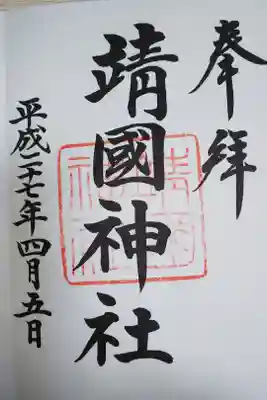 奉拜
靖國神社
平成二十七年四月五日